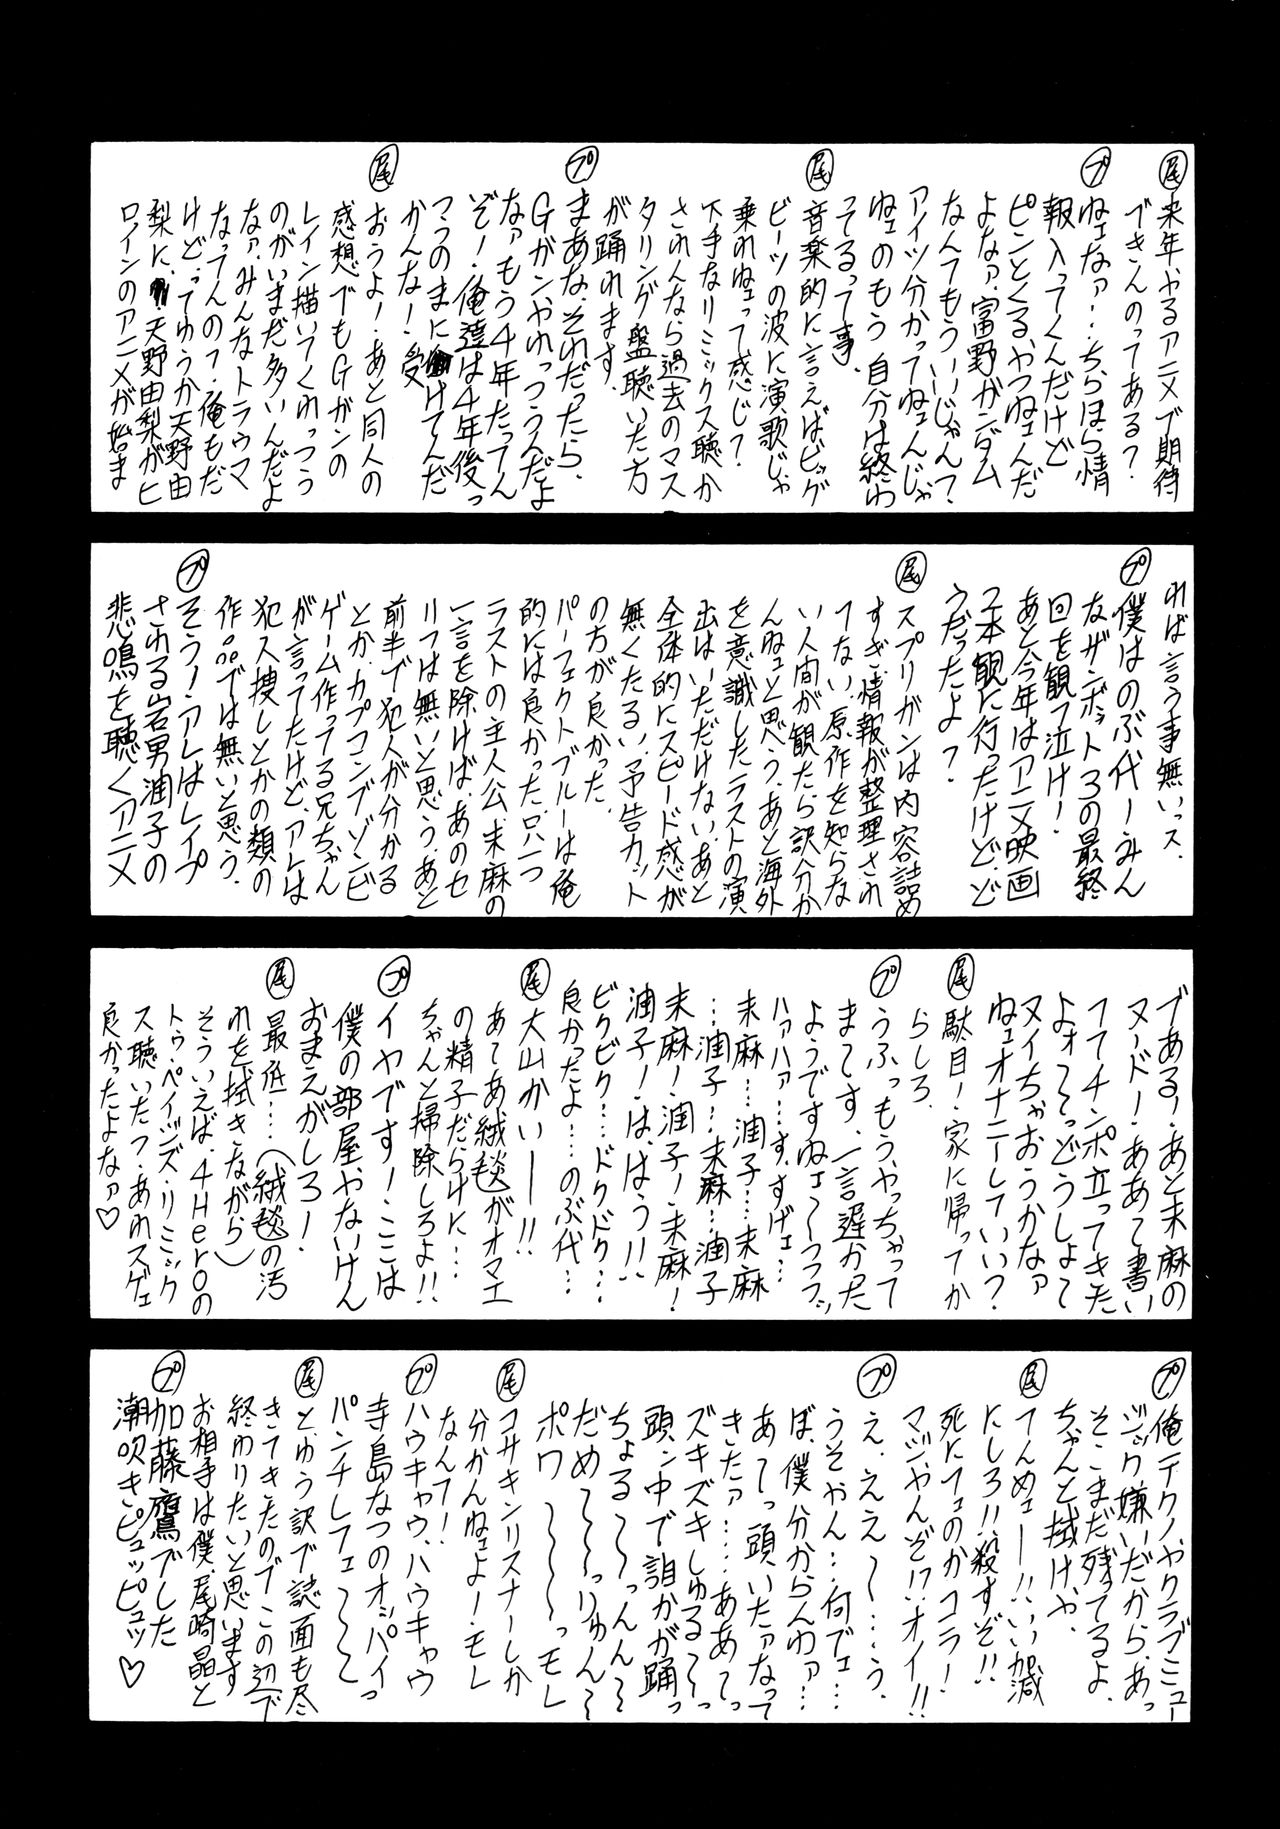 尾 来年やるアニメで期待
できんのってある?
プ ねェなァ…ちらほら情
報入ってくんだけど
ピンとくるやつねェんだ
よなァ、富野がンダム
なんてもういいじゃん?
アイツ分かってねェんじゃ
ねェのもう自分は終わ
ってるって事、
尾 音楽的に言えばビッグ
ビーツの波に演歌じゃ
乗れねェって感じ?
下手なリミックス聴か
されんなら過去のマス
タリング盤聴いた方
が踊れます。
プ まあな、それだったら、
Gガンやれっつうんだよ
なァもう4年たってん
ぞ!俺達は4年後っ
つうのまに受けてんだ
かんな!
尾 おうよ!あと同人の
感想でもGガンの
レイン描いてくれっつう
のがいまだ多いんだよ
なァ、みんなトラウマ
なってんの?俺もだ
けど、ってゆうか天野由
梨に、天野由梨がヒ
ロインのアニメが始ま
れば言う事無いっス、
プ 僕はのぶ代ーみん
なザンボット3の最終
回を観て泣け!
あと今年はアニメ映画
2本観に行ったけど、ど
うだったよ?
尾 スプリガンは内容詰め
すぎ、情報が整理され
てない、原作を知らな
い人間が観たら訳分か
んねェと思う、あと海外
を意識したラストの演
出はいただけない、あと
全体的にスピード感が
無くたるい、予告カット
の方が良かった、
パーフェクトブルーは俺
的には良かった、只一つ
ラストの主人公、未麻の
一言を除けば、あのセ
リフは無いと思う、あと
前半で犯人が分かる
とか、カプコンでゾンビ
ゲーム作ってる兄ちゃん
が言ってたけど、アレは
犯人捜しとかの類の
作品では無いと思う、
プ そう!アレはレイプ
される岩男潤子の
悲鳴を聴くアニメ
である!あと未麻の
ヌード!ああて書い
ててチンポ立ってきた
よォ〜〜っどうしよて
ヌイちゃおうかなァ
ねェオナニーしていい?
尾 駄目!家に帰ってか
らしろ、
プ うふっもうやっちゃって
まてす、一言遅かった
ようですねェ〜〜フフフッ
ハァハァ…す、すげェ…
未麻…潤子…未麻
…潤子…未麻…潤子
未麻!潤子!未麻!
潤子!は、はう!!
ビクビク…ドクドク…
良かったよ……のぶ代…
尾 大山かい──!!
あてあ絨毯がオマエ
の精子だらけに…
ちゃんと掃除しろよ!!
プ イヤです!ここは
僕の部屋やないけん
おまえがしろ!
尾 最低…(絨毯の汚
れを拭きながら)
そういえば、4HerOの
トゥ・ペイジズ・リミック
ス聴いた?あれスゲェ
良かったよなァ♡
プ 俺テクノ、やクラブミュー
ジック嫌いだから、あっ
そこまだ残ってるよ、
ちゃんと拭けや、
尾 てんめェー!!いい加減
にしろ!!殺すぞ!!
死にてェのかコラ!
マジやんぞ!?オイ!!
プ え、ええ〜〜……う、
うそやん…何でェ…
ぼ、僕分からんわァ…
あ〜っ頭いたァなって
きたァ……ああ〜っ
ズキズキしゅる〜〜っ
頭ン中で誰かが踊っ
ちょる〜〜っんん〜〜
だめ〜〜〜っりゅん〜〜
ポワ〜〜〜〜っモレ
尾 コサキンリスナーしか
分かんねェよ!モレ
なんて!
プ ハウキャウ、ハウキャウ
寺島なつのオッパイっ
パンチしてェ〜〜〜
尾 と、ゆう訳で誌面も尽
きてきたのでこの辺で
終わりたいと思います
お相手は僕、尾崎晶と
プ 加藤鷹でした
潮吹きピュッピュッ♡